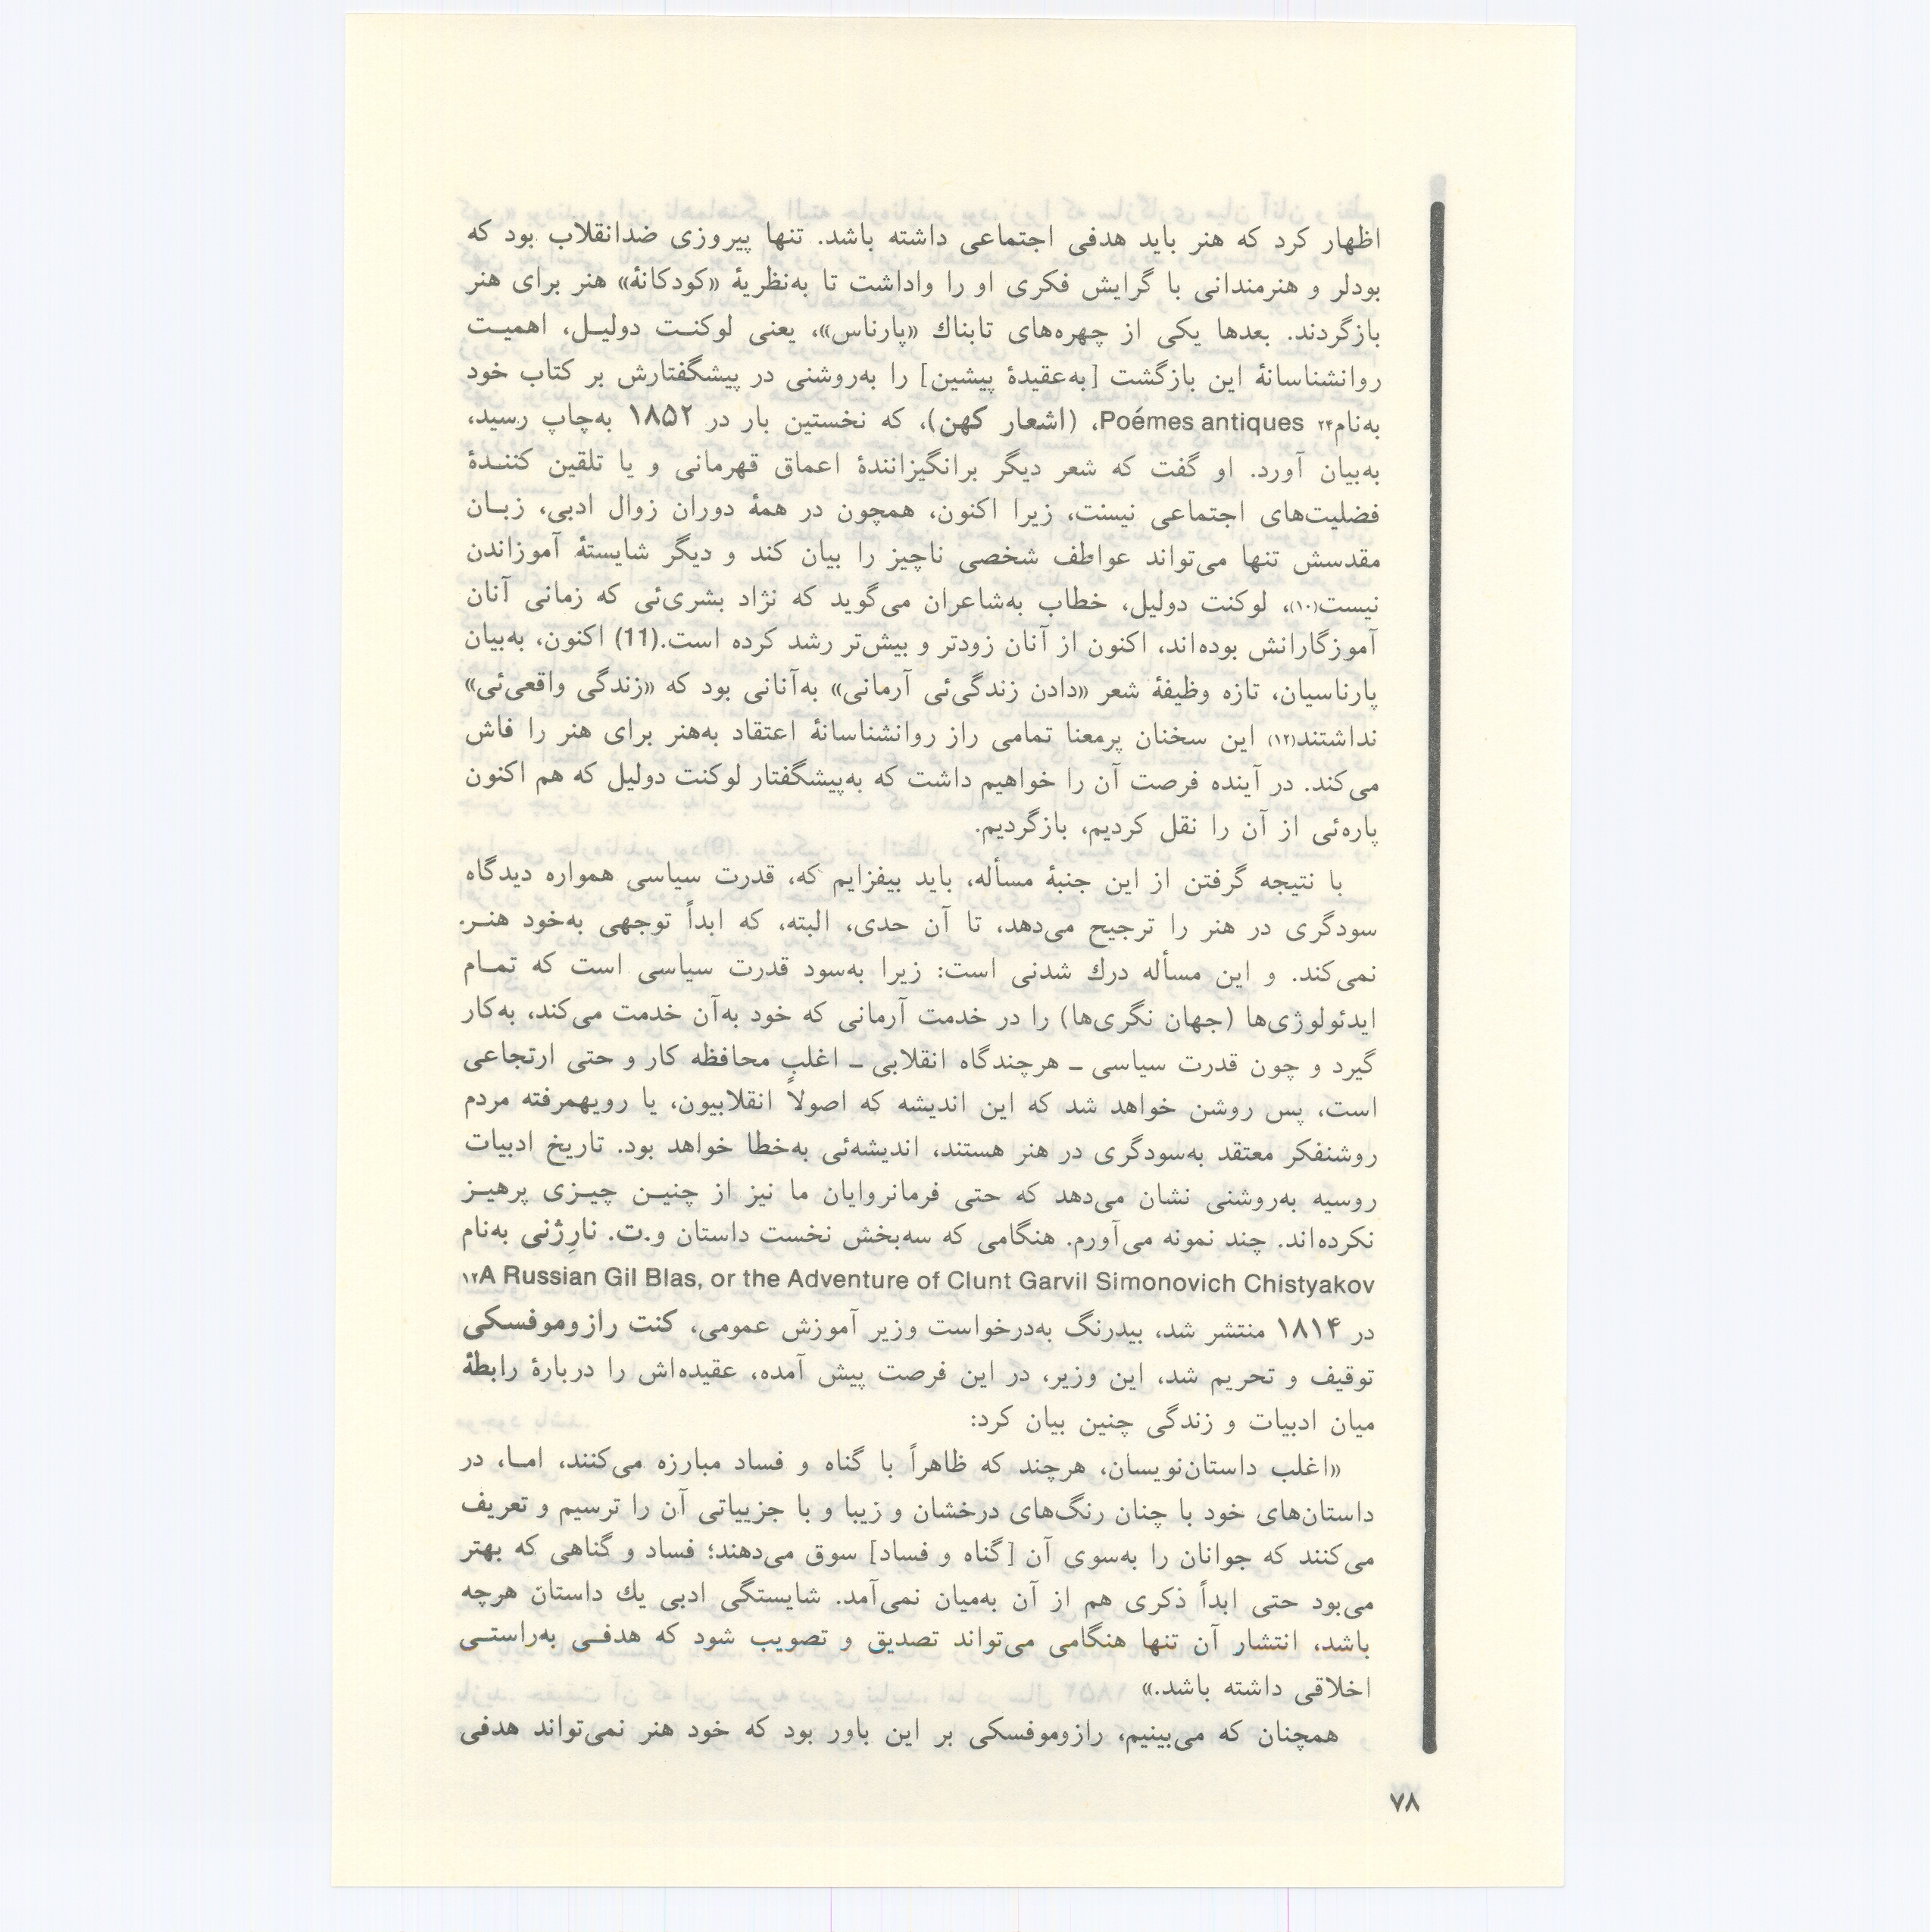 اظهار کرد که هنر باید هدفی اجتماعی داشته باشد. تنها پیروزی ضدانقلاب بود که
بودلر و هنرمندانی با گرایش فکری او را واداشت تا به‌نظریهٔ «کودکانهٔ» هنر برای هنر
بازگردند. بعدها یکی از چهره‌های تابناك «پارناس»، یعنی لوکنـت دولیـل، اهمیـت
روانشناسانهٔ این بازگشت [به‌عقیدهٔ پیشین] را به‌روشنی در پیشگفتارش بر کتاب خود
به‌نام۲۴ Poémes antiques، (اشعار کهن)، که نخستین بار در ۱۸۵۲ به‌چاپ رسید،
به‌بیان آورد. او گفت که شعر دیگر برانگیزانندهٔ اعماق قهرمانی و یا تلقین کننـدهٔ
فضلیت‌های اجتماعی نیست، زیرا اکنون، همچون در همهٔ دوران زوال ادبی، زبـان
مقدسش تنها می‌تواند عواطف شخصی ناچیز را بیان کند و دیگر شایستهٔ آموزاندن
نیست(۱۰)، لوکنت دولیل، خطاب به‌شاعران می‌گوید که نژاد بشری‌ئی که زمانی آنان
آموزگارانش بوده‌اند، اکنون از آنان زودتر و بیش‌تر رشد کرده است.(11) اکنون، به‌بیان
پارناسیان، تازه وظیفهٔ شعر «دادن زندگی‌ئی آرمانی» به‌آنانی بود که «زندگی واقعی‌ئی»
نداشتند(۱۲) این سخنان پرمعنا تمامی راز روانشناسانهٔ اعتقاد به‌هنر برای هنر را فاش
می‌کند. در آینده فرصت آن را خواهیم داشت که به‌پیشگفتار لوکنت دولیل که هم اکنون
پاره‌ئی از آن را نقل کردیم، بازگردیم.
با نتیجه گرفتن از این جنبهٔ مسأله، باید بیفزایم که، قدرت سیاسی همواره دیدگاه
سودگری در هنر را ترجیح می‌دهد، تا آن حدی، البته، که ابداً توجهی به‌خود هنـر.
نمی‌کند. و این مسأله درك شدنی است: زیرا به‌سود قدرت سیاسی است که تمـام
ایدئولوژی‌ها (جهان نگری‌ها) را در خدمت آرمانی که خود به‌آن خدمت می‌کند، به‌کار
گیرد و چون قدرت سیاسی ـ هرچندگاه انقلابی ـ اغلب محافظه کار و حتی ارتجاعی
است، پس روشن خواهد شد که این اندیشه که اصولاً انقلابیون، یا رویهمرفته مردم
روشنفکر معتقد به‌سودگری در هنر هستند، اندیشه‌ئی به‌خطا خواهد بود. تاریخ ادبیات
روسیه به‌روشنی نشان می‌دهد که حتی فرمانروایان ما نیز از چنیـن چیـزی پرهیـز
نکرده‌اند. چند نمونه می‌آورم. هنگامی که سه‌بخش نخست داستان و.ت. نارِژنی به‌نام
۱۲A Russian Gil Blas, or the Adventure of Clunt Garvil Simonovich Chistyakov
در ۱۸۱۴ منتشر شد، بیدرنگ به‌درخواست وزیر آموزش عمومی، کنت رازوموفسکی
توقیف و تحریم شد، این وزیر، در این فرصت پیش آمده، عقیده‌اش را دربارهٔ رابطهٔ
میان ادبیات و زندگی چنین بیان کرد:
«اغلب داستان‌نویسان، هرچند که ظاهراً با گناه و فساد مبارزه می‌کنند، امـا، در
داستان‌های خود با چنان رنگ‌های درخشان و زیبا و با جزییاتی آن را ترسیم و تعریف
می‌کنند که جوانان را به‌سوی آن [گناه و فساد] سوق می‌دهند؛ فساد و گناهی که بهتر
می‌بود حتی ابداً ذکری هم از آن به‌میان نمی‌آمد. شایستگی ادبی یك داستان هرچه
باشد، انتشار آن تنها هنگامی می‌تواند تصدیق و تصویب شود که هدفـی به‌راستـی
اخلاقی داشته باشد.»
همچنان که می‌بینیم، رازوموفسکی بر این باور بود که خود هنر نمی‌تواند هدفی
۷۸